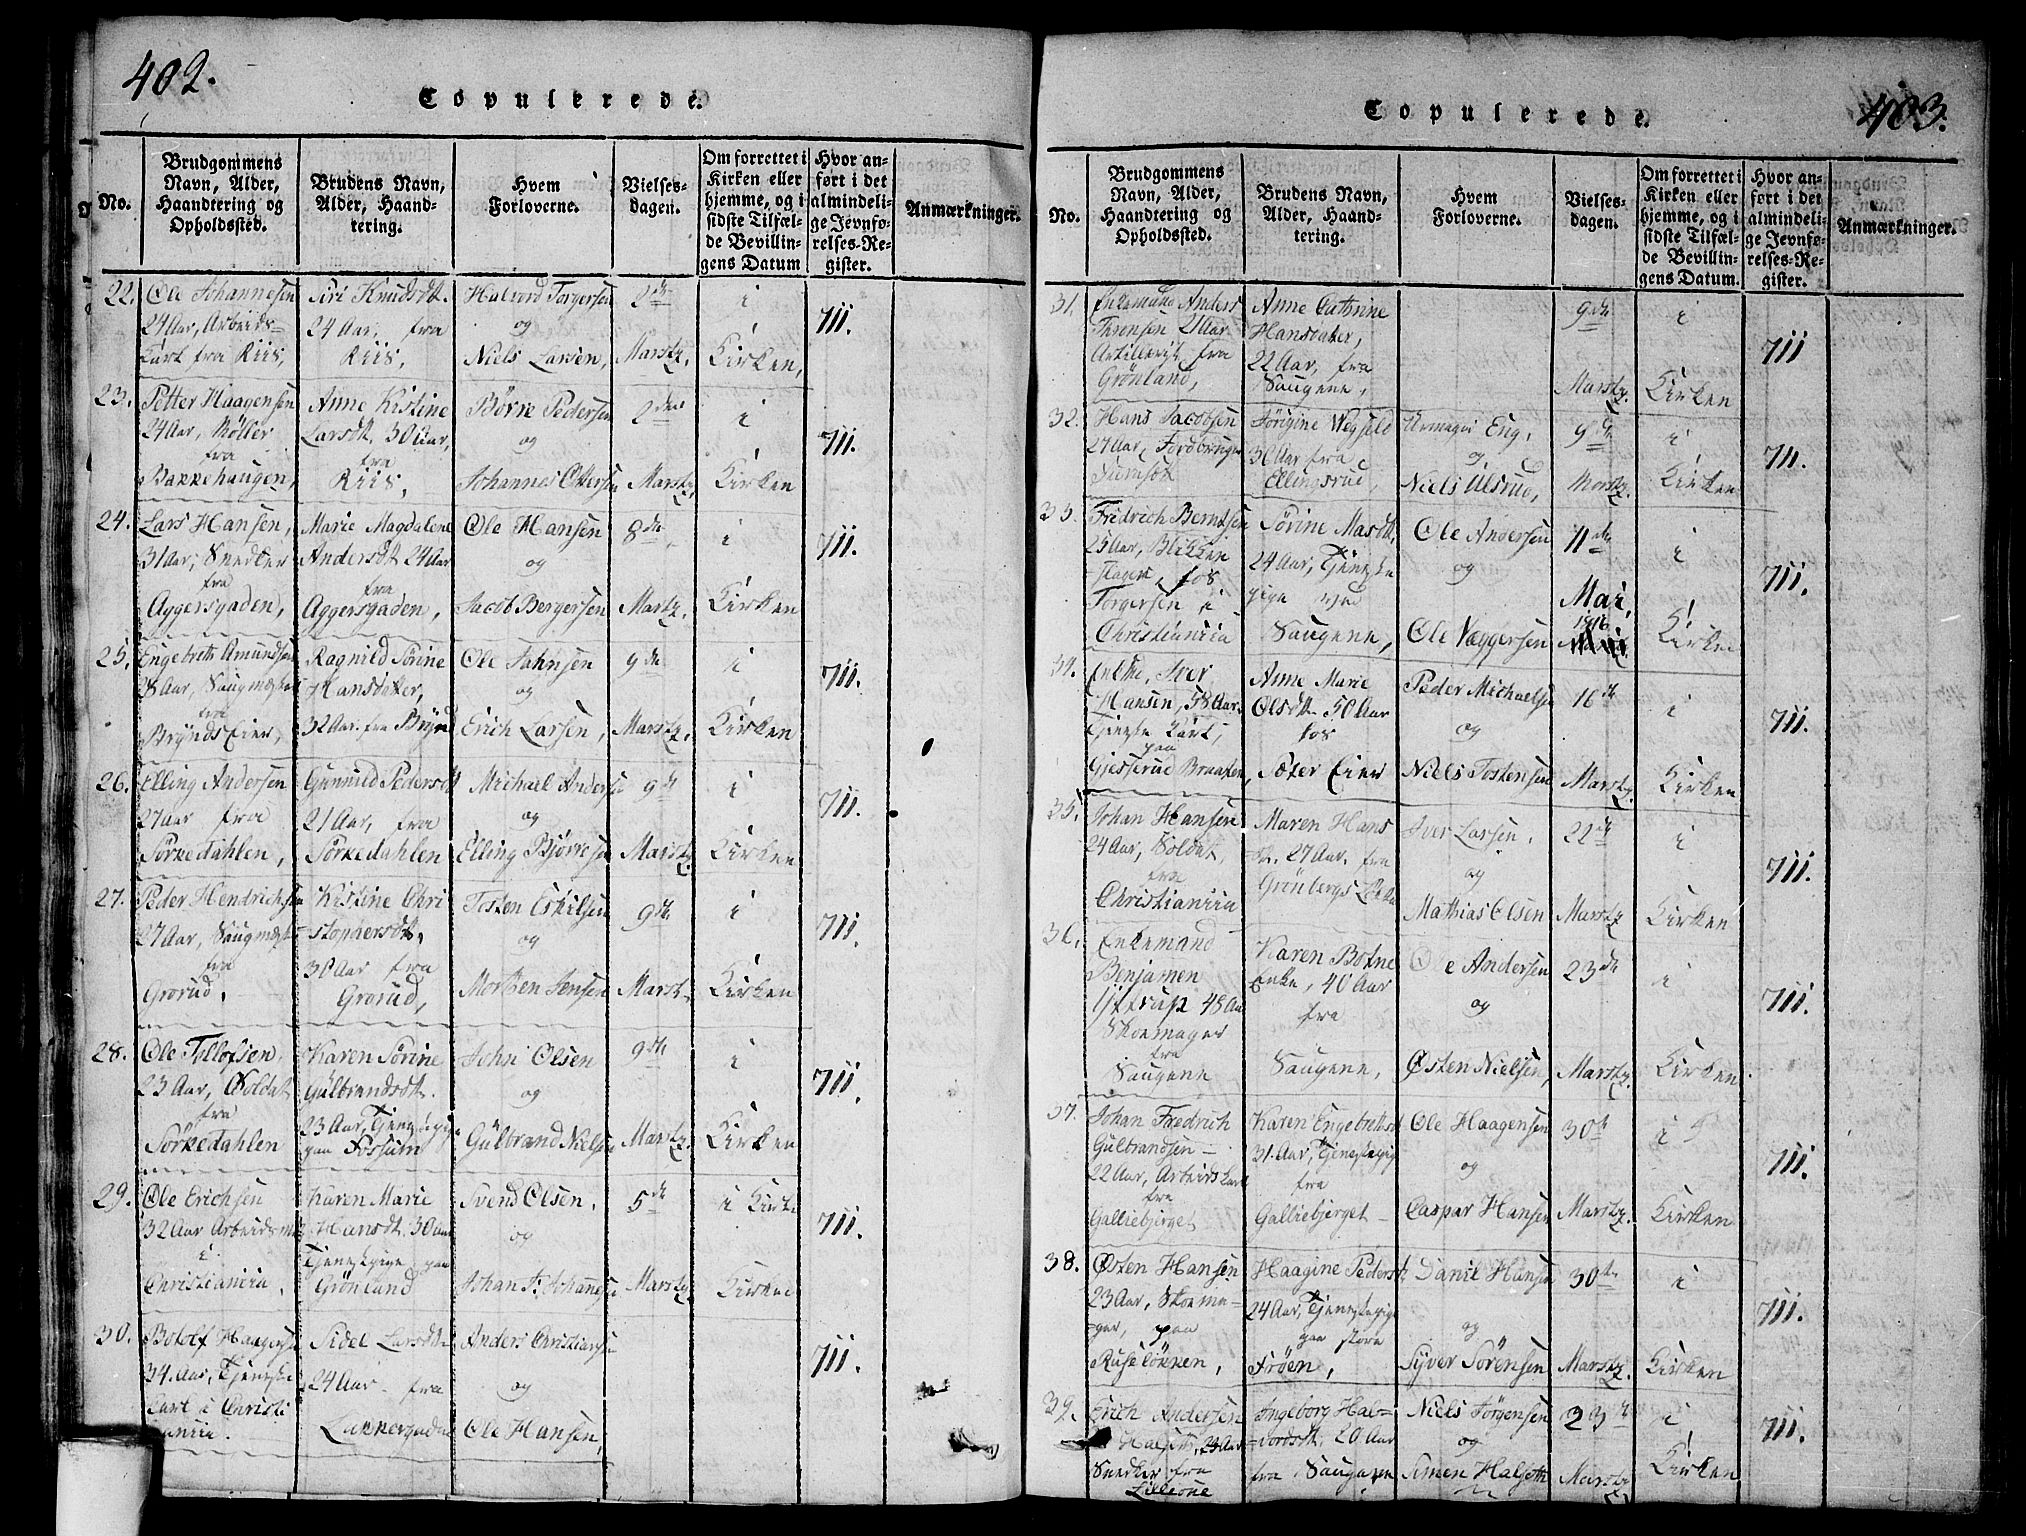 402.
Copulerede.
No.
Brudgommens
Navn, Alder,
Haandtering og
Opholdssted.
Brudens Navn,
Alder, Haand-
tering.
Hvem
Forloverne.
Vielses-
dagen.
Om forrettet i
Kirken eller
hjemme, og i
sidste Tilfæl-
de Bevillin-
gens Datum
Hvor an-
ført i det
almindeli-
ge Jevnfø-
relses-Re-
gister.
Anmærkninger.
22.
Ole Johannesen
24 Aar, Arbeids-
Karl fra Riis,
Siri Knudsdt.
24 Aar. fra
Riis,
Halvord Torgersen
og
Niels Larsen,
2de
Martz.
i
Kirken,
711.
23.
Petter Haagensen
24 Aar, Møller
fra
Bakkehaugen,
Anne Kistine
Larsdt. 30 Aar,
fra
Riis,
Børre Pedersen
og
Johannes Ottersen
2den
Martz,
i
Kirken
711.
24.
Lars Hansen,
31 Aar, Snedker
fra
Aggersgaden,
Marie Magdalene
Andersdt. 24 Aar
fra
Aggersgaden,
Ole Hansen
og
Jacob Bergersen
8de
Martz.
i
Kirken
711.
25.
Engebreth Amundsen
28 Aar, Saugmester
fra
Brynds Eier,
Ragnild Sørine
Hansdater,
32 Aar. fra Brynd
Ole Jahnsen
og
Erich Larsen,
9de
Martz.
i
Kirken
711.
26.
Elling Andersen
27 Aar fra
Sørkedahlen,
Gunnild Pedersdt
21 Aar, fra
Sørkedahlen
Michael Andersen
og
Elling Bjørresen
9de
Martz.
i
Kirken
711.
27.
Peder Hendrichsen
27 Aar, Saugmest-
fra
Grorud,
Kistine Chri
stophersdt.
30 Aar fra
Grorud,
Tosten Eskilsen
og
Morten Jensen
9de
Marst.
i
Kirken
711.
28.
Ole Tollofsen
23 Aar, Soldat
fra
Sørkedahlen
Karen Sørine
Gulbrandsdt.
23 Aar, Tjenestepige
paa Fossum
John Olsen
og
Gulbrand Nielsen
9de
Martz.
i
Kirken
711.
29.
Ole Erichsen
32 Aar Arbeidsm
i
Christiania,
Karen Marie
Hansdt. 30 Aar
Tjenestepige paa
Grønland
Svend Olsen,
og
Johan Fr. Johannesen
5de
Martz.
i Kirke
Kirken
711.
30.
Botolf Haagensen
34. Aar, Tjeneste
Karl i Christi
ania.
Sidel Larsdt.
24 Aar. fra
Lakkergaden
Anders Christiansen
og
Ole Hansen,
711.
403.
Copulerede.
No.
Brudgommens
Navn, Alder,
Haandtering og
Opholdssted.
Brudens Navn,
Alder, Haand-
tering.
Hvem
Forloverne.
Vielses-
dagen.
Om forrettet i
Kirken eller
hjemme, og i
sidste Tilfæl-
de Bevillin-
gens Datum.
Hvor an-
ført i det
almindeli-
ge Jevnfø-
relses-Re-
gister.
Anmærkninger.
31.
Enkemand Anders
Aar
Artillerist fra
Grønland,
Anne Cathrine
Hansdater,
22 Aar, fra
Saugene,
9de
Martz.
i
Kirken
711
32.
Hans Jacobsen
27 Aar,
Jørgine
30 Aar fra
Ellingsrud,
Eng,
og
Niels Ulsrud,
9de
Martz.
i
Kirken
711.
33.
Fridrich Berntsen
25 Aar, Blikken
slager, hos
Torgersen i
Christiania
Sørine Masdt.
24 Aar, Tjeneste
pige ved
Saugene,
Ole Andersen
og
Ole Væggersen
11de
Mai,
1816
i
Kirken
711.
34.
Enkem, Iver
Hansen, 58 Aar.
Tjeneste Karl,
paa
Gjesserud Braaten,
Anne Marie
Olsdt. 50 Aar
hos
Sæter Eier
Peder Michaelsen
og
Niels Tostensen
16de
Martz.
i
Kirken
711.
35.
Johan Hansen
24 Aar, Soldat,
fra
Christiania
Maren Hans
dt. 27 Aar. fra
Grønbergs Løkke
Iver Larsen,
og
Mathias Olsen
22de
Martz
i
Kirken
711.
36.
Enkemand
Benjamen
48 Aar
Skoemager
fra
Saugene
Karen Botne
Enke, 40 Aar
fra
Saugene,
Ole Andersen
og
Østen Nielsen,
23de
Martz.
i
Kirken
711.
37.
Johan Fredrich
Gulbrandsen -
22 Aar, Arbeids Karl
fra
Galliebjerget
Karen Engebretsdt
31. Aar, Tjenestepige
fra
Galliebjerget -
Ole Haagensen
og
Caspar Hansen
30te
Martz.
i
Kirken
711.
38.
Østen Hansen
23 Aar, Skoema-
ger, paa
Ruseløkken,
Haagine Pedersdt.
24 Aar, Tjenestepige
paa store
Frøen,
Daniel Hansen
og
Syver Sørensen
30te
Martz.
i
Kirken
711.
39.
Erich Andersen
Halseth, 23 Aar
Snedker fra
Lilleone
Ingeborg Hal-
vordsdt, 20 Aar
fra Saugene
Niels Jørgensen
og
Simen Halseth
Martz.
i
Kirken
711.